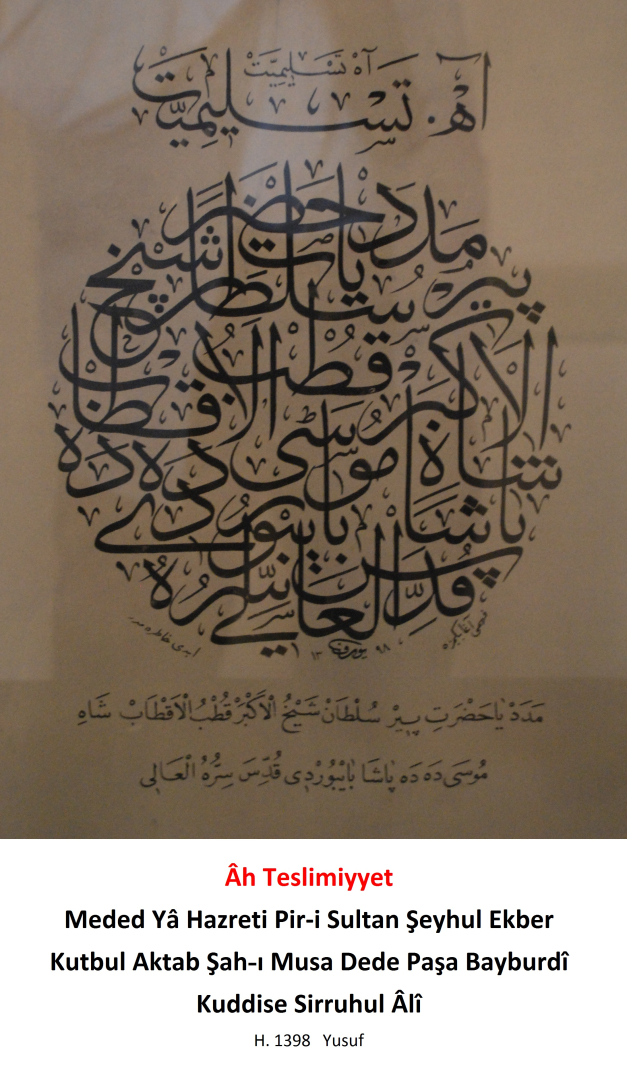 آه تَسْلِيمِيَّتْ
آه. تَسْلِيمِيَّتْ
مَدَدْ يَا حَضْرَتِ پِيرْ سُلْطَانْ شَيْخُ الْاَكْبَرْ قُطْبُ الْاَقْطَابْ شَاهِ
مُوسَى دَه دَه پَاشَا بَايْبُورْدِي قُدِّسَ سِرُّهُ الْعَالِي
۱۳ يوسف ۹۸
مَدَدْ يَا حَضْرَتِ پِيرْ سُلْطَانْ شَيْخُ الْاَكْبَرْ قُطْبُ الْاَقْطَابْ شَاهِ
مُوسَى دَه دَه پَاشَا بَايْبُورْدِي قُدِّسَ سِرُّهُ الْعَالِي
Âh Teslimiyyet
Meded Yâ Hazreti Pir-i Sultan Şeyhul Ekber
Kutbul Aktab Şah-ı Musa Dede Paşa Bayburdî
Kuddise Sirruhul Âlî
H. 1398 Yusuf